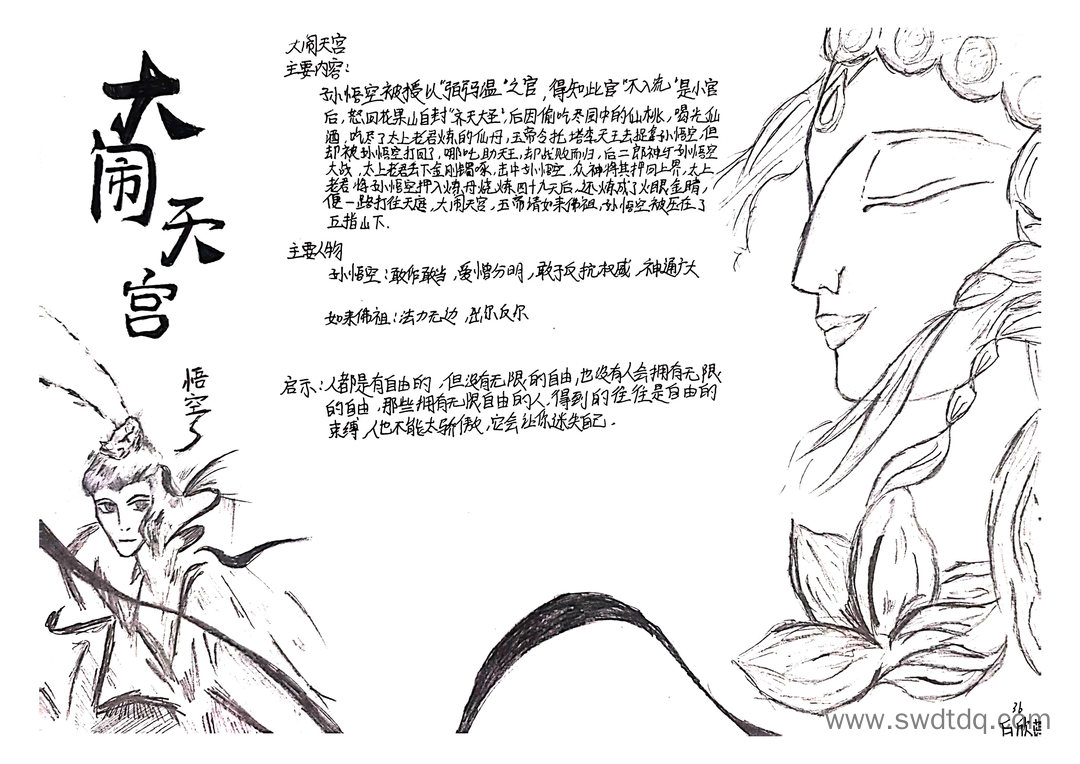 大闹天宫
悟空
大闹天宫
主要内容：
孙悟空被授以“弼马温”之官，得知此官“不入流”是小官
后，怒回花果山自封“齐天大圣”，后因偷吃尽园中的仙桃，喝光仙
酒，吃尽了太上老君炼的仙丹，玉帝令托塔李天王去捉拿孙悟空，但
却被孙悟空打回了，哪吒助天王，却战败而归，后二郎神与孙悟空
大战，太上老君丢下金刚镯，击中孙悟空，众神将其押回上界，太上
老君将孙悟空押入炼丹烧炼四十九天后，还炼成了火眼金睛，
便一路打往天庭，大闹天宫，玉帝请如来佛祖，孙悟空被压在了
五指山下．
主要人物
孙悟空：敢作敢当，爱憎分明，敢于反抗权威，神通广大
如来佛祖：法力无边，出尔反尔
启示：人都是有自由的，但没有无限的自由，也没有人会拥有无限
的自由，那些拥有无限自由的人，得到的往往是自由的
束缚，人也不能太骄傲，它会让你迷失自己．
36
www.swdtdq.com